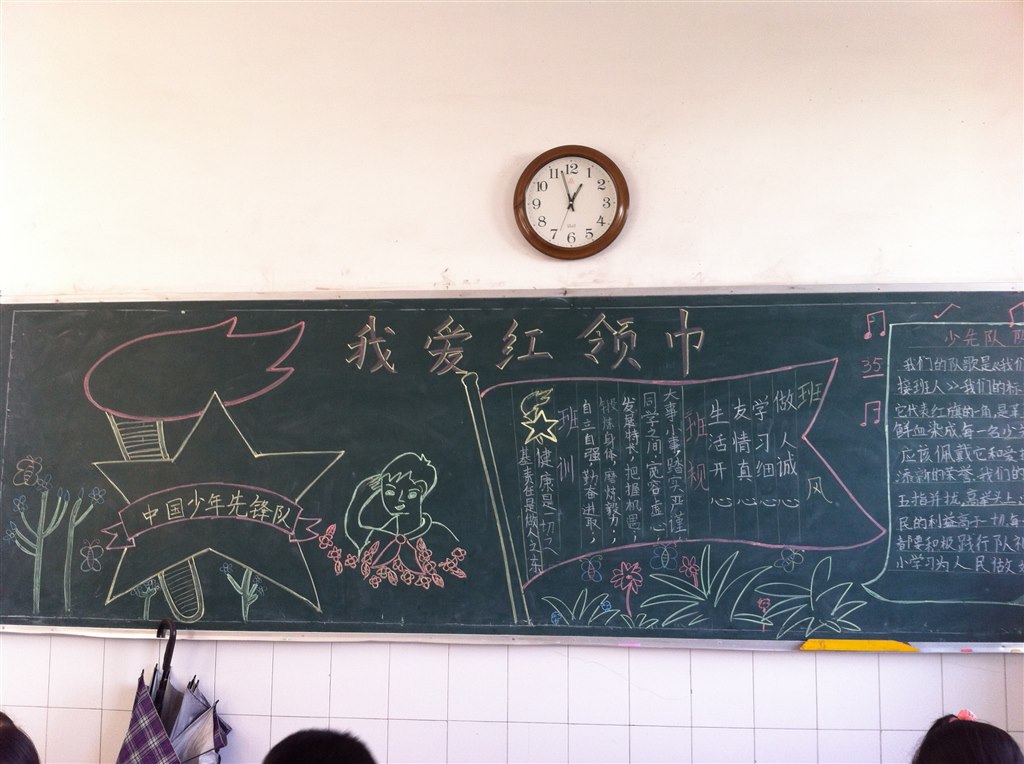 12
1
2
3
4
5
6
7
8
9
10
11
我爱红领巾
中国少年先锋队
班风
做人诚心
学习细心
友情真心
生活开心
班规
大事小事，踏实严谨
同学之间，宽容虚心
发展特长，把握机遇，
锻炼身体，磨炼毅力，
自立自强，勤奋进取，
班训
健康是一切之
基，责任是做人之本
35
少先队队
我们的队歌是《我们
接班人》，我们的标
它代表红旗的一角，是革
鲜血染成，每一名小学
应该佩戴它和爱护
添新的荣誉，我们的
五指并拢，高举头上
民的利益高于一切，每
都要积极践行队礼
小学习为人民做好